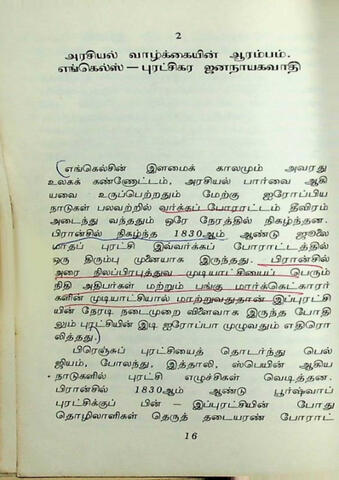 2
அரசியல் வாழ்க்கையின் ஆரம்பம்.
எங்கெல்ஸ் — புரட்சிகர ஜனநாயகவாதி
எங்கெல்சின் இளமைக் காலமும் அவரது
உலகக் கண்ணோட்டம், அரசியல் பார்வை ஆகி
யவை உருப்பெற்றதும் மேற்கு ஐரோப்பிய
நாடுகள் பலவற்றில் வர்க்கப் போராட்டம் தீவிரம்
அடைந்து வந்ததும் ஒரே நேரத்தில் நிகழ்ந்தன.
பிரான்சில் நிகழ்ந்த 1830ஆம் ஆண்டு ஜூலை
மாதப் புரட்சி இவ்வர்க்கப் போராட்டத்தில்
ஒரு திரும்பு முனையாக இருந்தது. பிரான்சில்
அரை நிலப்பிரபுத்துவ முடியாட்சியைப் பெரும்
நிதி அதிபர்கள் மற்றும் பங்கு மார்க்கெட்காரர்
களின் முடியாட்சியால் மாற்றுவதுதான் இப்புரட்சி
யின் நேரடி நடைமுறை விளைவாக இருந்த போதி
லும் புரட்சியின் இடி ஐரோப்பா முழுவதும் எதிரொ
லித்தது.
பிரெஞ்சுப் புரட்சியைத் தொடர்ந்து பெல்
ஜியம், போலந்து, இத்தாலி, ஸ்பெயின் ஆகிய
நாடுகளில் புரட்சி எழுச்சிகள் வெடித்தன.
பிரான்சில் 1830ஆம் ஆண்டு பூர்ஷ்வாப்
புரட்சிக்குப் பின் — இப்புரட்சியின் போது
தொழிலாளிகள் தெருத் தடையரண் போராட்
16